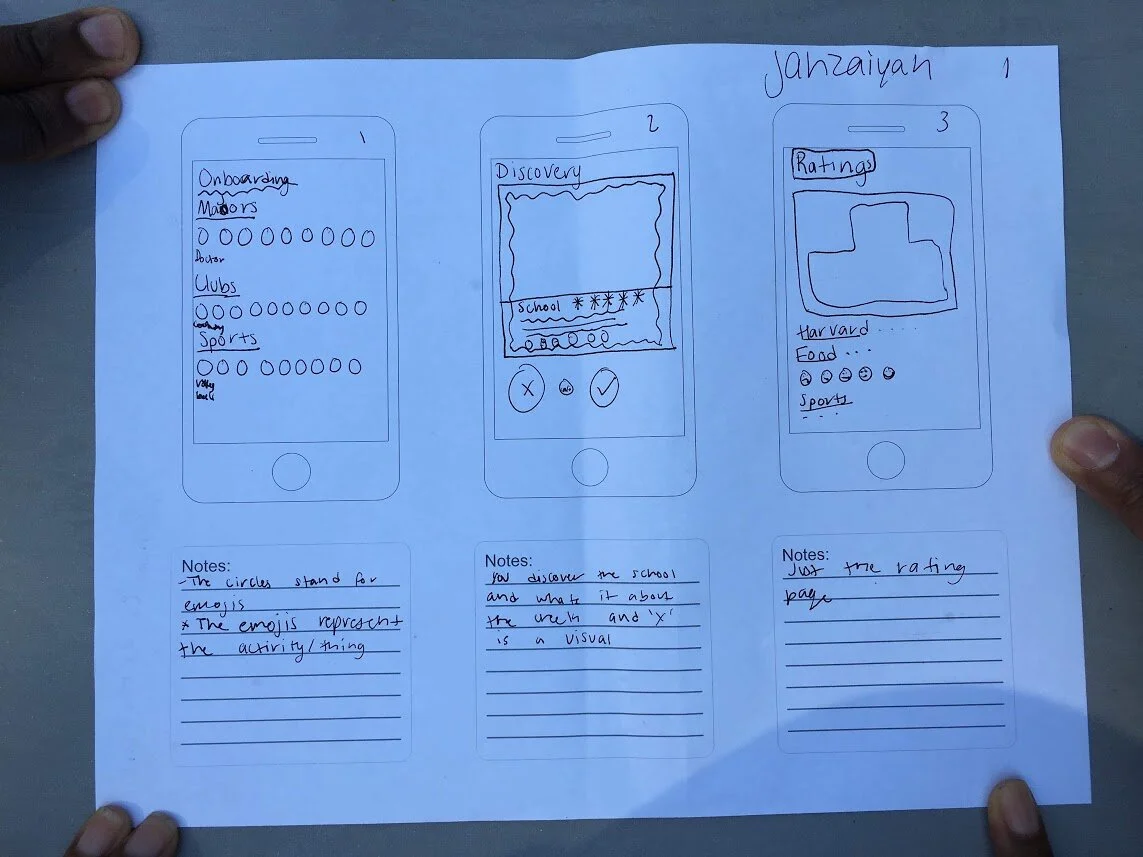 Janzaiyah 1
1
Onboarding
Majors
Doctor
Clubs
Sports
2
Discovery
School *****
X
3
Ratings
Harvard ....
Food ...
Sports
...
Notes:
- The circles stand for
emojis
* The emojis represent
the activity/thing
Notes:
You discover the school
and whats it about
the and 'x'
is a visual
Notes:
Just the rating
page